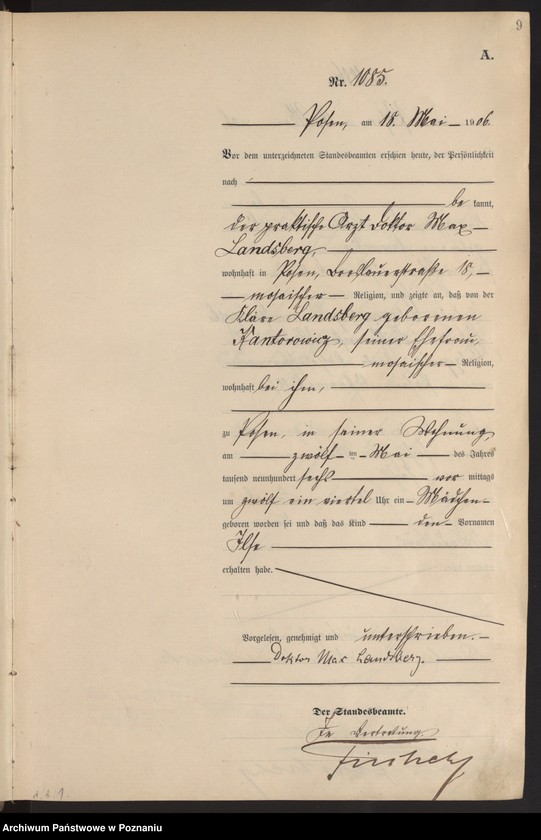 9
A.
Nr. 1085.
Posen, am 18. Mai 1906.
Vor dem unterzeichneten Standesbeamten erschien heute, der Persönlichkeit
nach
be kannt,
der praktische Arzt Doktor Max
Landsberg,
wohnhaft in Posen, Breslauerstraße 18,
mosaischer Religion, und zeigte an, daß von der
Kläre Landsberg geborenen
Kantorowicz, seiner Ehefrau,
mosaischer Religion,
wohnhaft bei ihm,
zu Posen, in seiner Wohnung,
am zwölften Mai des Jahres
tausend neunhundert sechs vor mittags
um zwölf ein viertel Uhr ein Mädchen
geboren worden sei und daß das Kind den Vornamen
Ilse
erhalten habe.
Vorgelesen, genehmigt und unterschrieben.
Doktor Max Landsberg.
Der Standesbeamte.
In Vertretung.
Archiwum Państwowe w Poznaniu